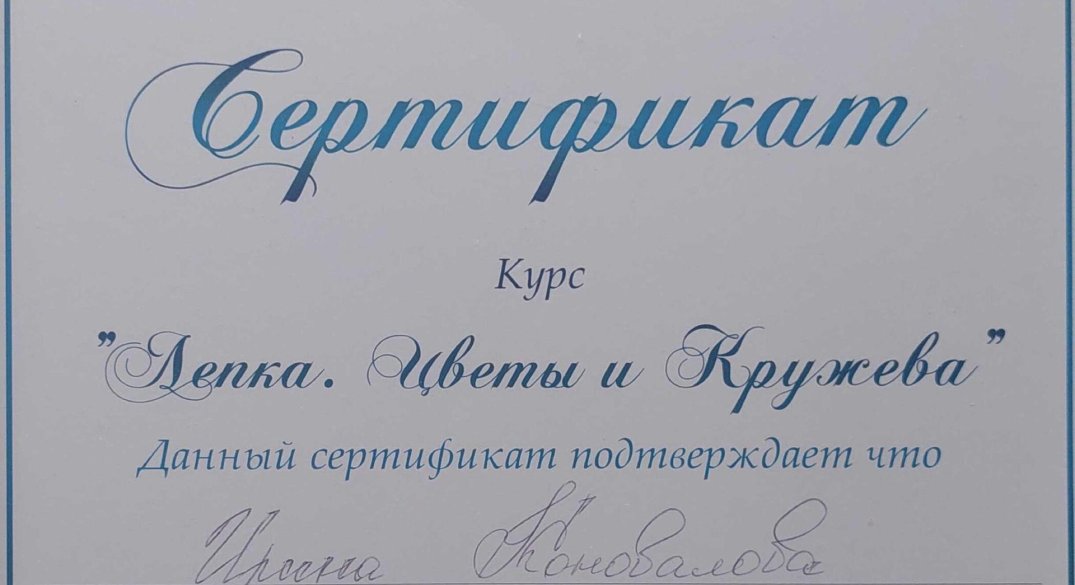 Сертификат
Курс
"Лепка. Цветы и Кружева"
Данный сертификат подтверждает что
Ирина Коновалова